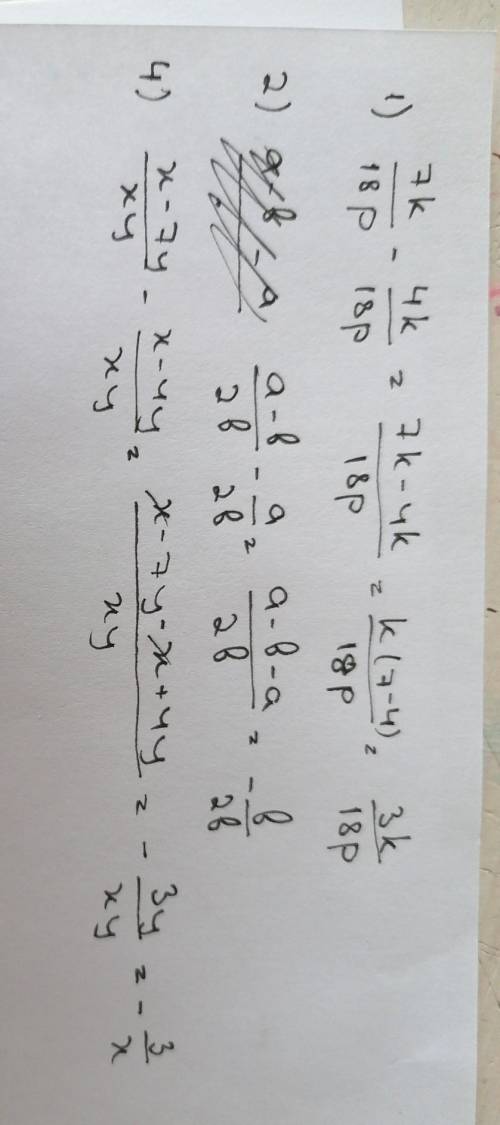 1) 7k/18p - 4k/18p = 7k-4k/18p = k(7-4)/18p = 3k/18p
2) a-b/2b - a/2b = a-b-a/2b = - b/2b
4) x-7y/xy - x-4y/xy = x-7y-x+4y/xy = - 3y/xy = - 3/x